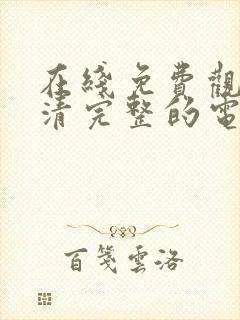 在綫免費觀
清完整的電
百箋雲洛